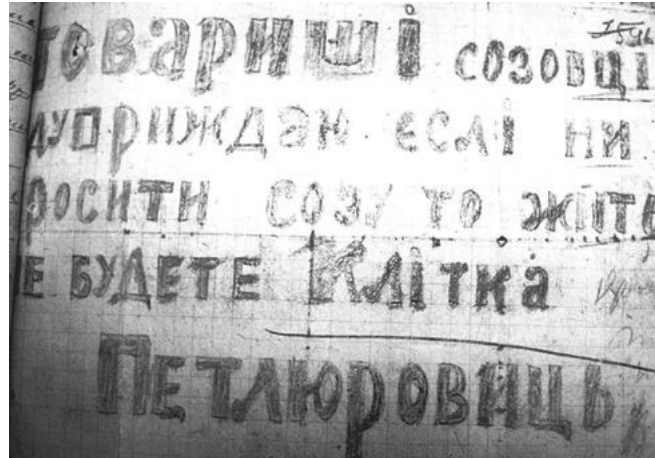 товариші созовці
дуприждаю єслі ни
росити созу то жить
Е БУДЕТЕ Клітка
ПЕТЛЮРОВИЦЬ